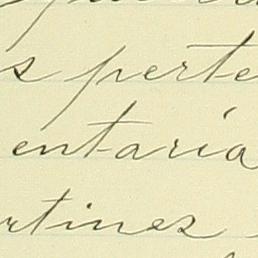 s perte
entaria
rtinez